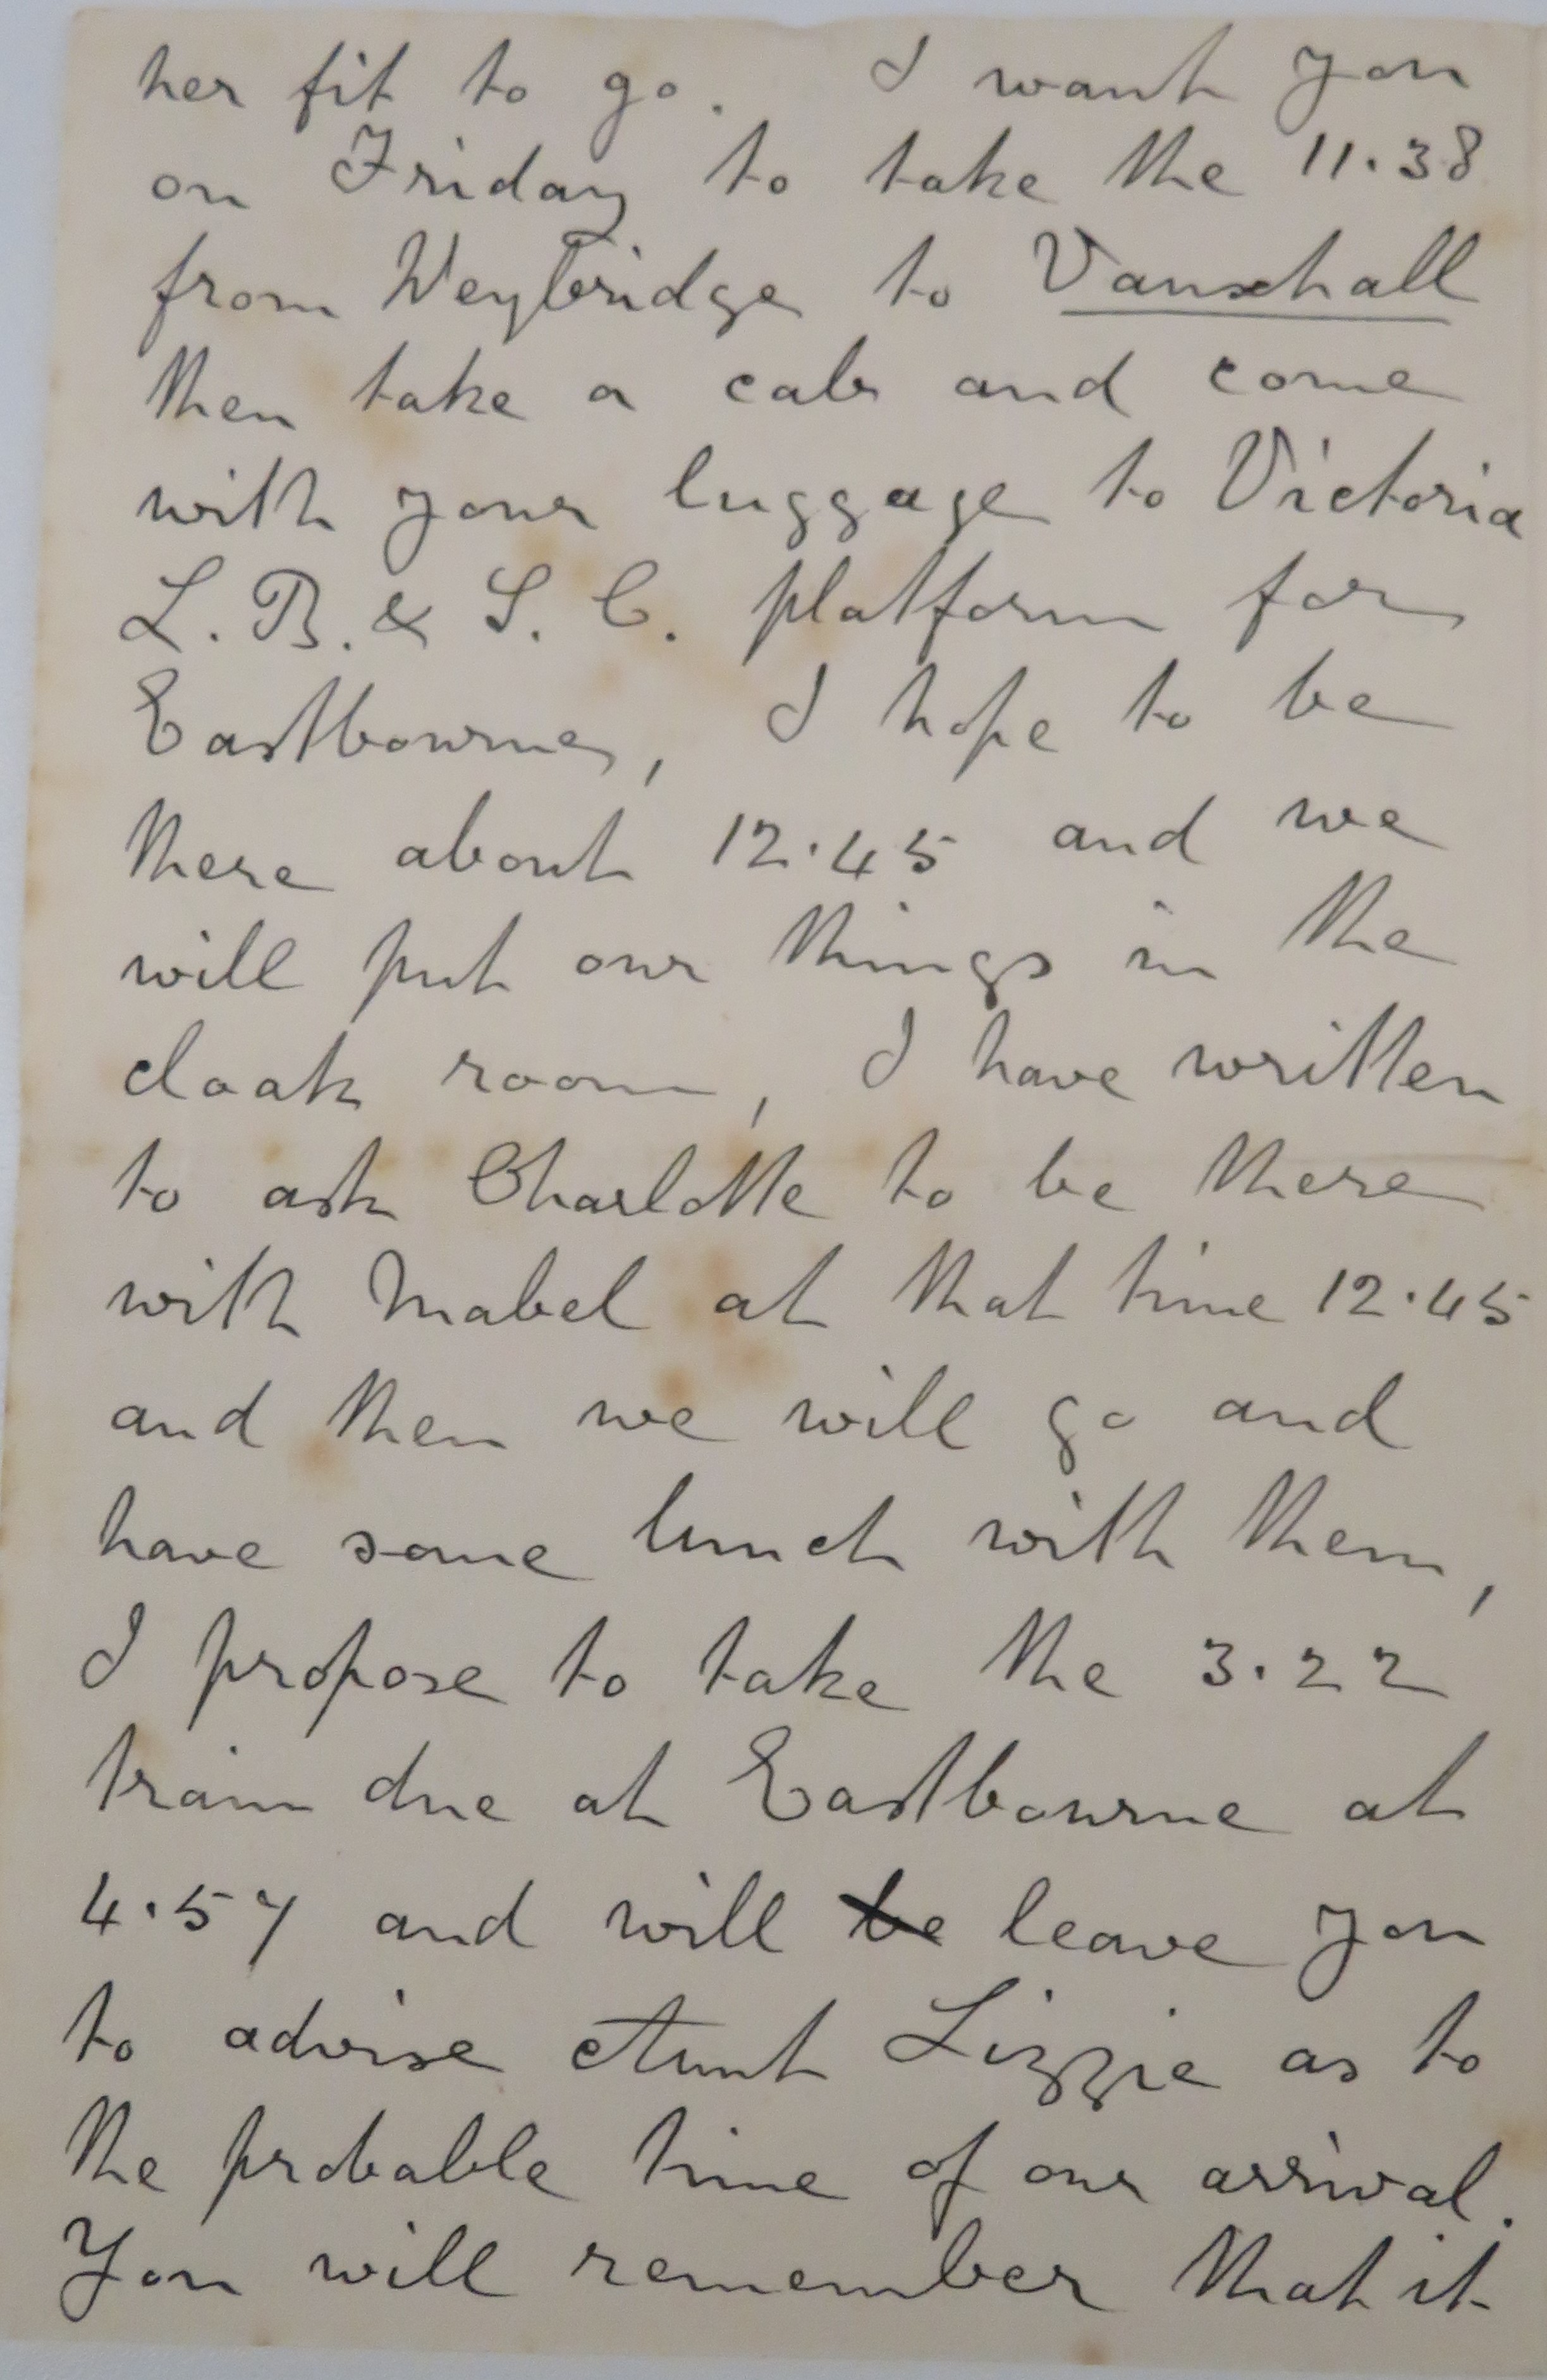 her fit to go. I want you
on Friday to take the 11.38
from Weybridge to Vauxhall
then take a cab and come
with your luggage to Victoria
L. B. & S. C. platform for
Eastbourne, I hope to be
there about 12.45 and we
will put our things in the
cloak room, I have written
to ask Charlotte to be there
with Mabel at that time 12.45
and then we will go and
have some lunch with them,
I propose to take the 3.22
train due at Eastbourne at
4.57 and will be leave you
to advise Aunt Lizzie as to
the probable time of our arrival.
You will remember that it